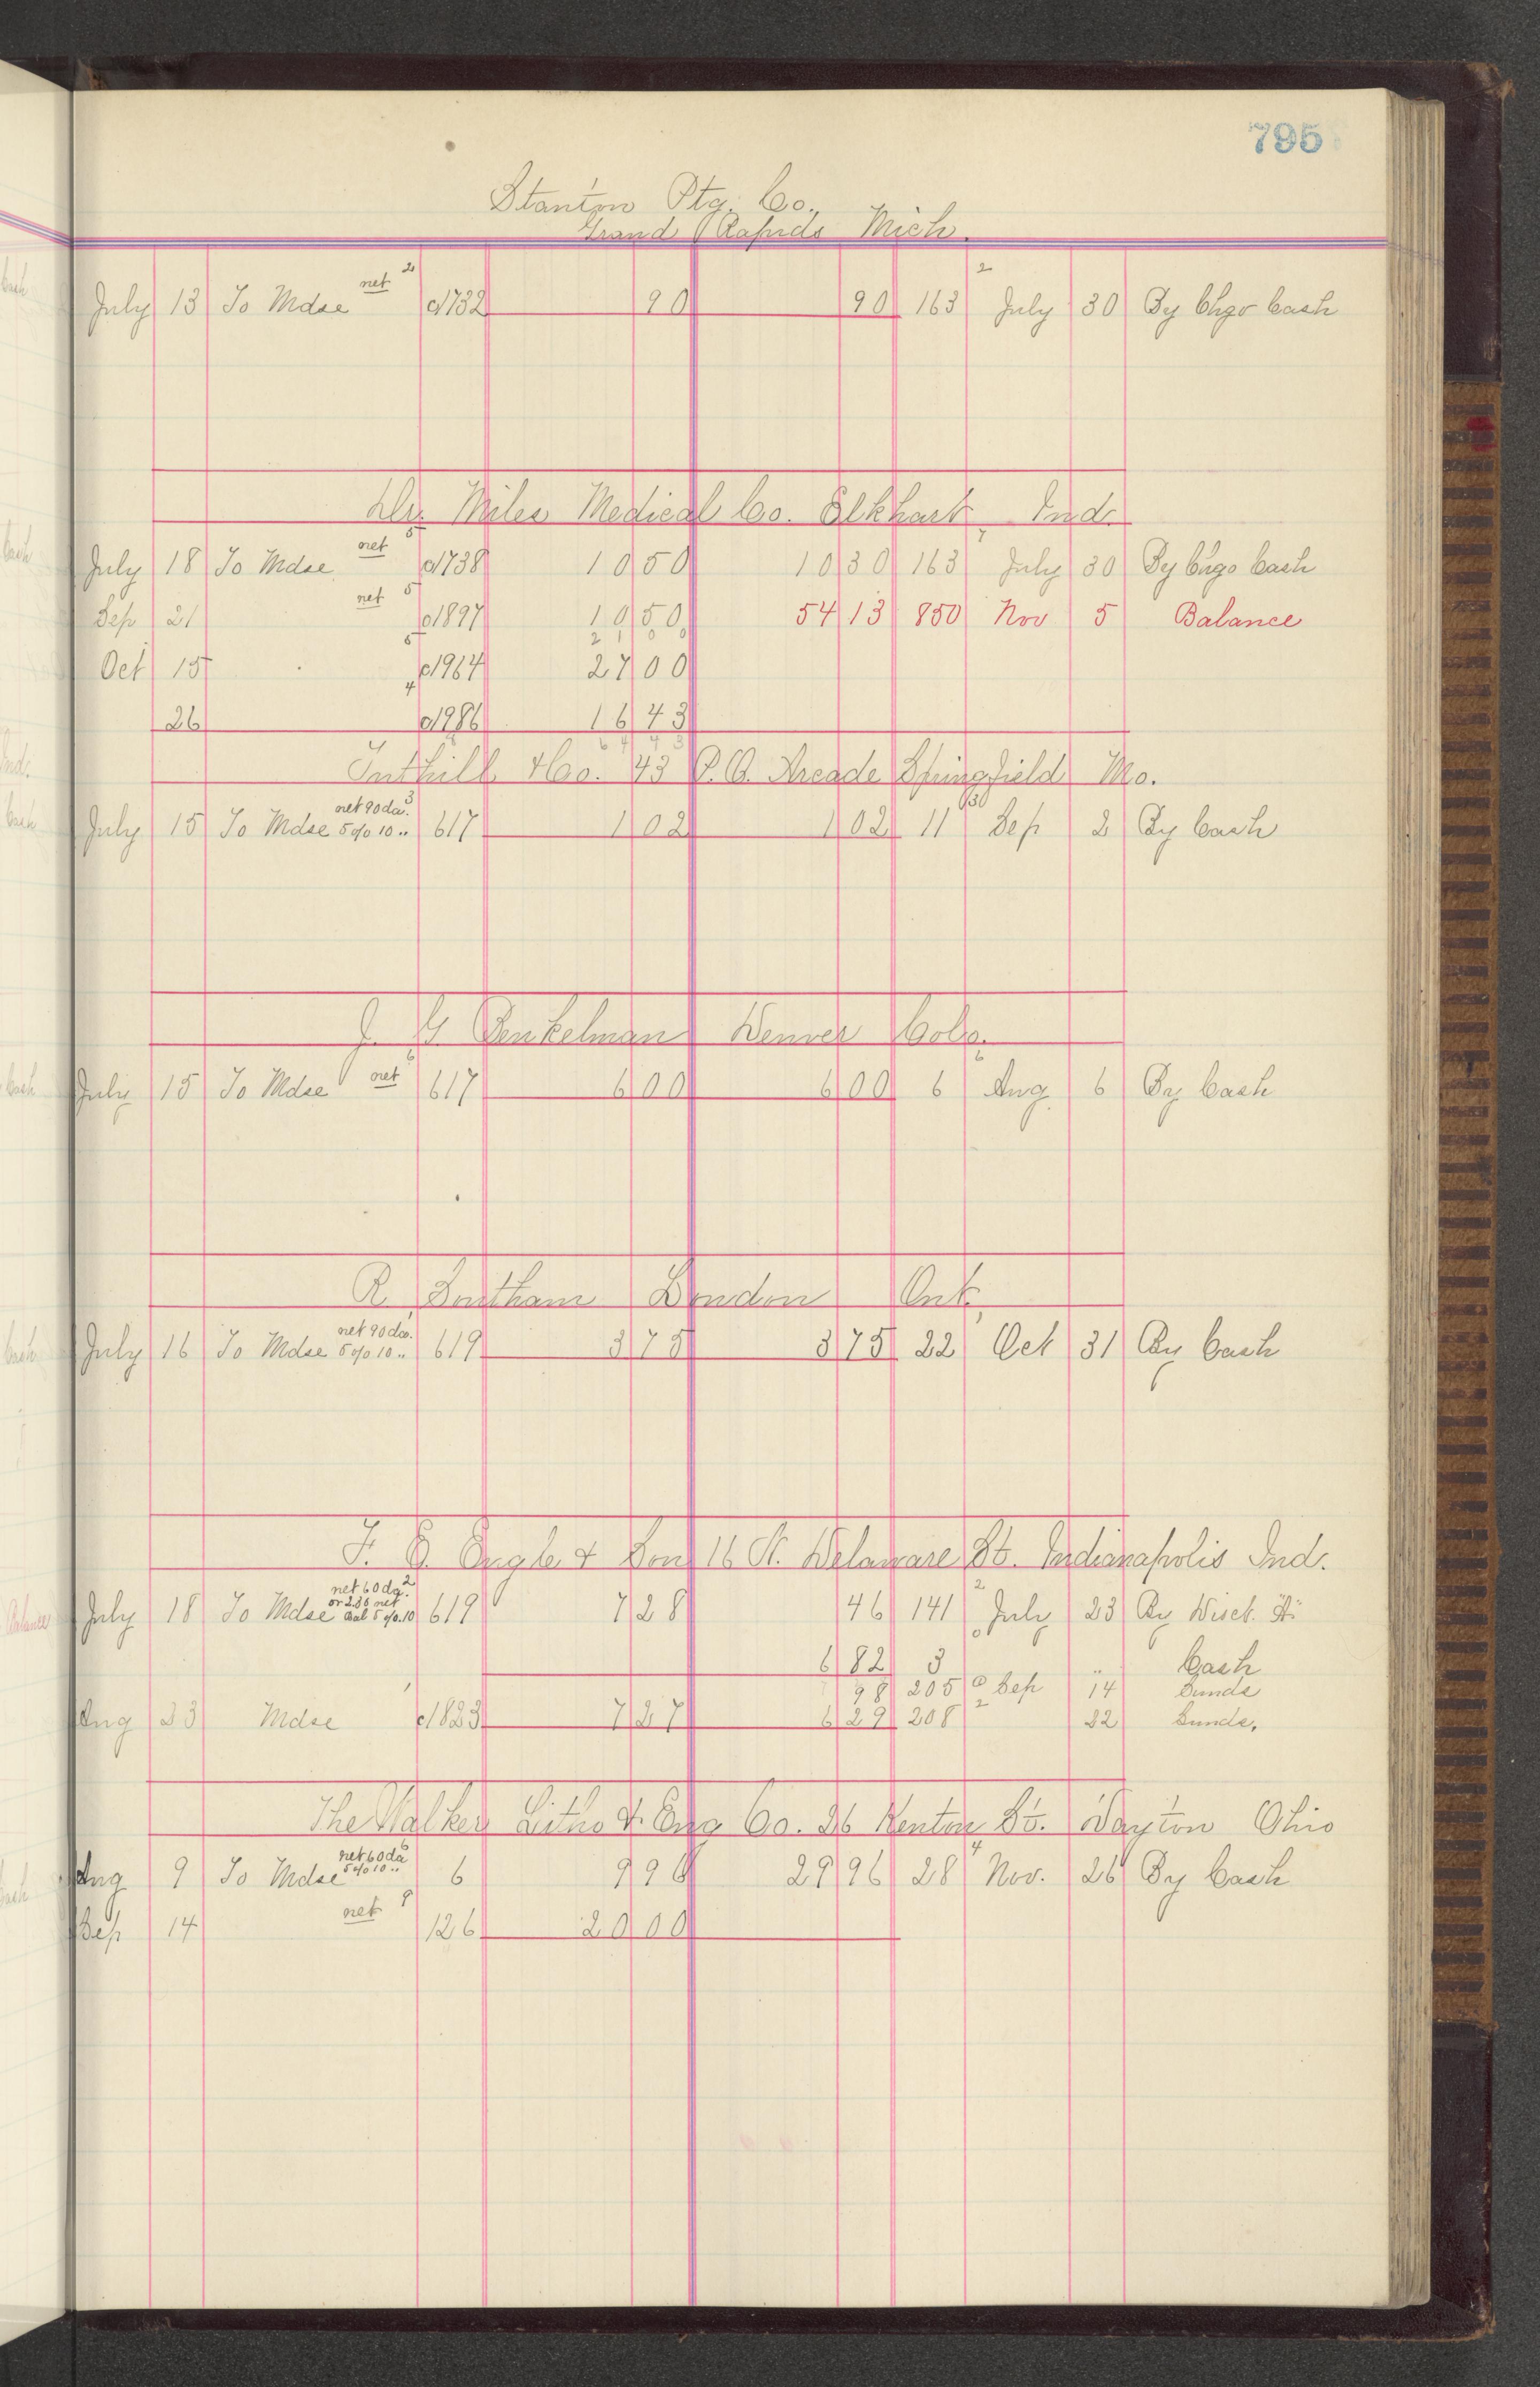 795
Stanton Ptg. Co.
Grand Rapids Mich.
July 13 To Mdse net 2 c1732 90 90 163 2 July 30 By Chgo Cash
Dr. Miles Medical Co. Elkhart Ind.
July 18 To Mdse net 5 c1738 10 50 10 30 163 7 July 30 By Chgo Cash
Sep 21 net 5 c1897 10 50 54 13 850 Nov 5 Balance
2 1 0 0
Oct 15 5 c1964 27 00
26 4 c1986 16 43
6 4 4 3
Tuthill & Co. 43 P.O. Arcade Springfield Mo.
July 15 To Mdse net 90 da. 3 5% 10 " 617 1 02 1 02 11 30 Sep 2 By Cash
J. G. Benkelman Denver Colo.
July 15 To Mdse net 6 617 6 00 6 00 6 6 Aug 6 By Cash
R Southam London Ont.
July 16 To Mdse net 90 da. 5% 10 " 619 3 75 3 75 22 Oct 31 By Cash
F. E. Engle & Son 16 N. Delaware St. Indianapolis Ind.
July 18 To Mdse net 60 da. 2 or 2.36 net Bal 5% 10 619 7 28 46 141 2 July 23 By Disct. "A"
6 82 3 0 " Cash
98 205 0 Sep 14 Sunds
Aug 23 Mdse c1823 7 27 6 29 208 2 22 Sunds.
The Walker Litho & Eng Co. 26 Kenton St. Dayton Ohio
Aug 9 To Mdse net 60 da 6 5% 10 " 6 9 96 29 96 28 4 Nov. 26 By Cash
Sep 14 net 9 126 20 00